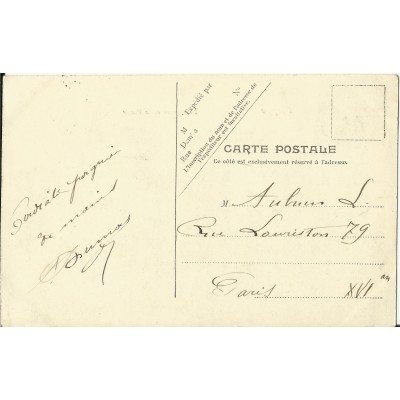 M Expédié par
Nº
Dom à
Rue
L'inscription du nom et de l'adresse de
l'expéditeur est facultative.
CARTE POSTALE
Ce côté est exclusivement réservé à l'adresse.
Cordiale poignée
de mains
M Aubum L.
Rue Lauriston 79
Paris XVIᵉ